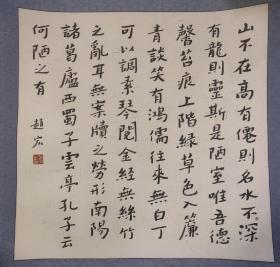 山不在高有僊則名水不深
有龍則靈斯是陋室唯吾德
馨苔痕上階緑草色入簾
青談笑有鴻儒往來無白丁
可以調素琴閲金經無絲竹
之亂耳無案牘之勞形南陽
諸葛廬西蜀子雲亭孔子云
何陋之有
趙宏